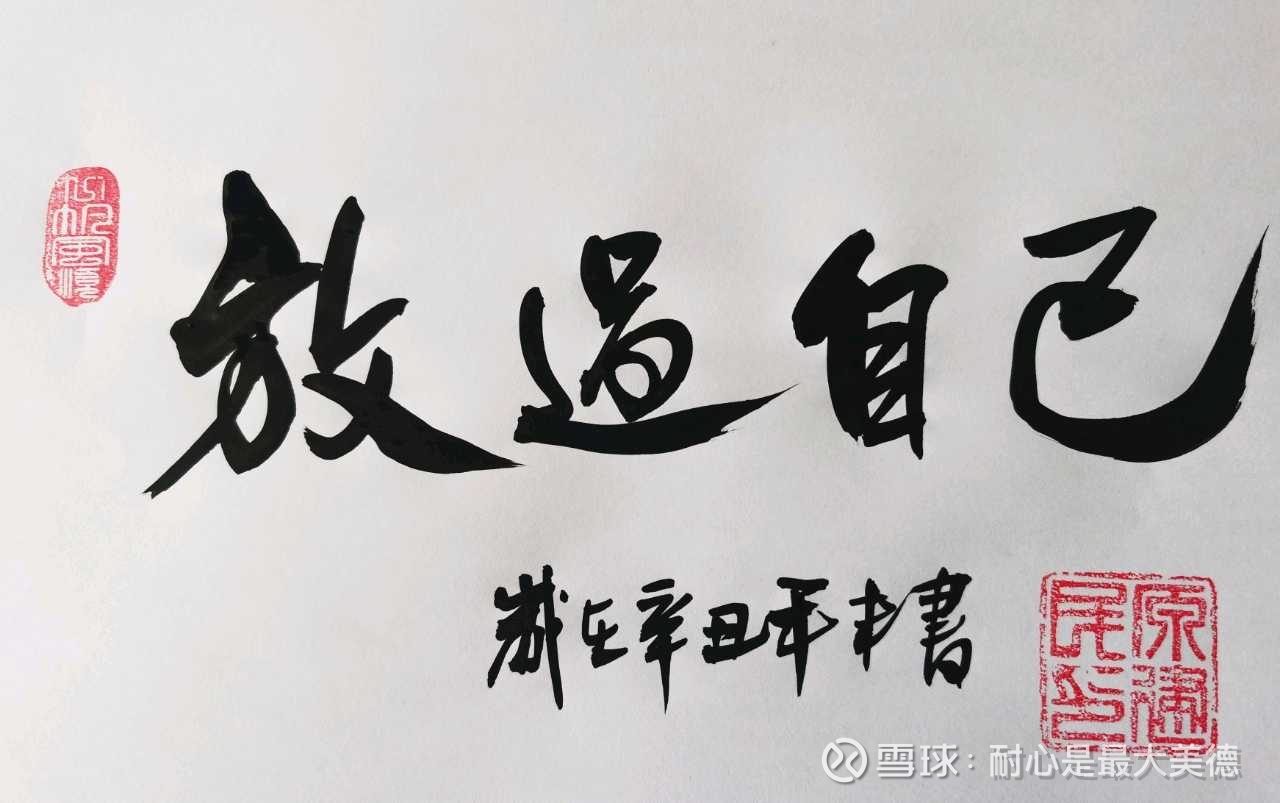 放過自己
歲在辛丑年書
建民印
雪球：耐心是最大美德